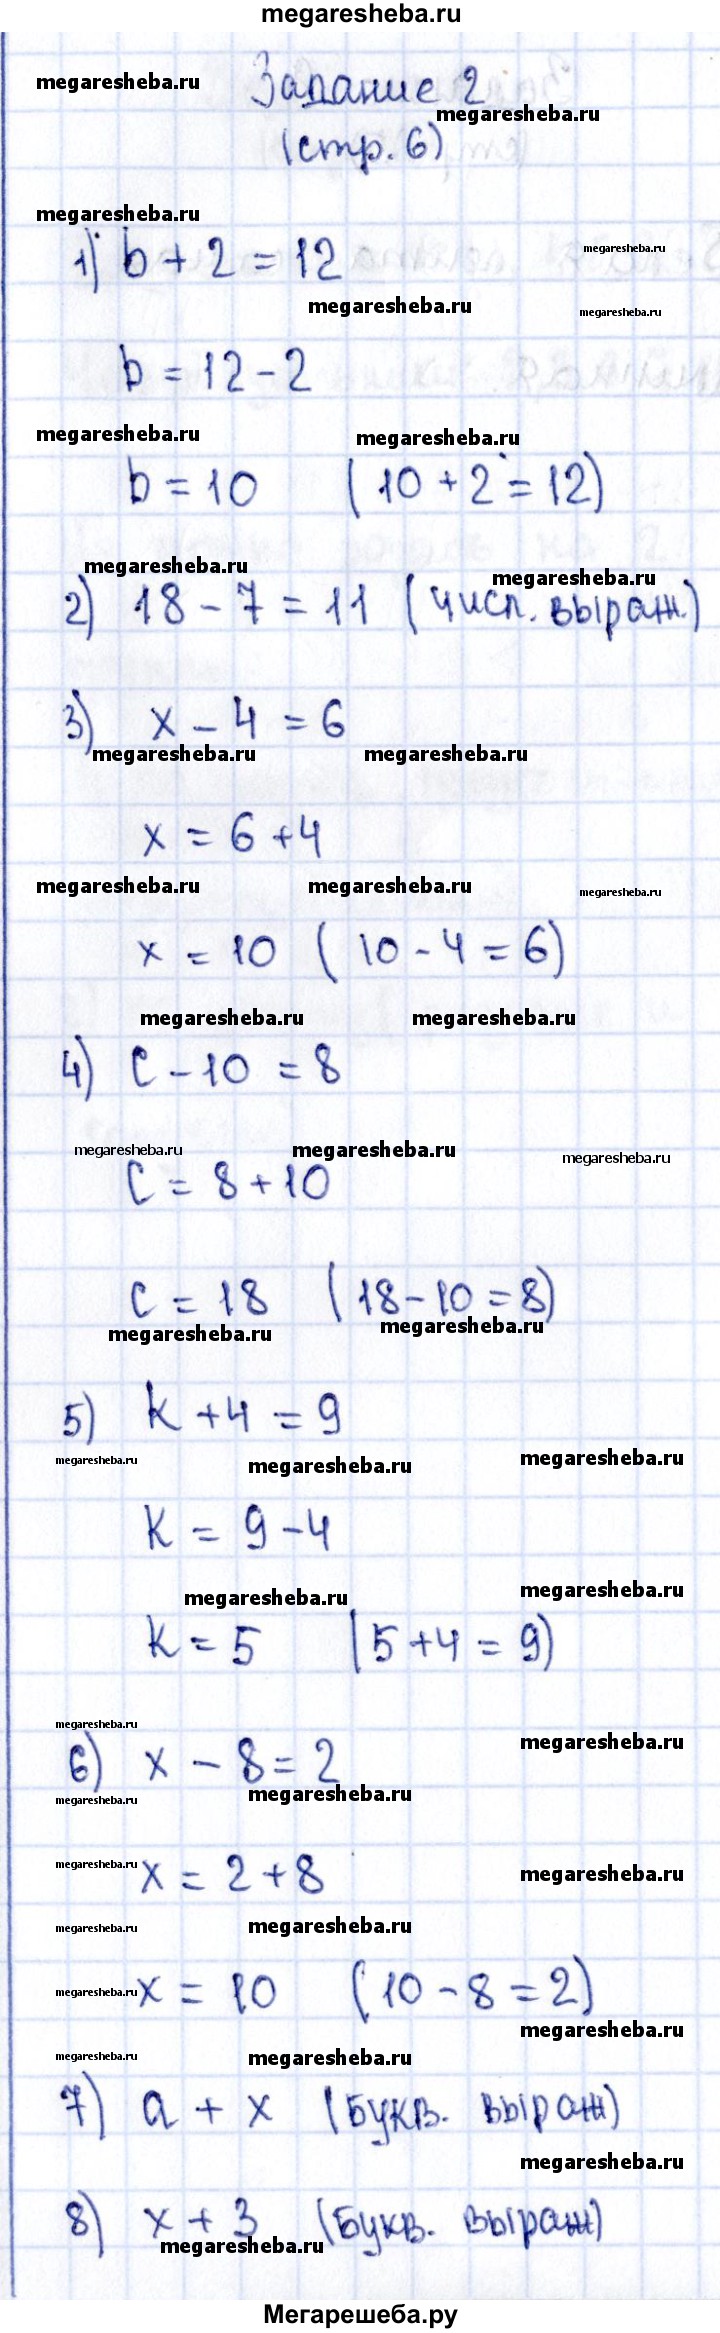 megaresheba.ru
megaresheba.ru
Задание 2
megaresheba.ru
(стр. 6)
megaresheba.ru
1) b + 2 = 12
megaresheba.ru
megaresheba.ru
megaresheba.ru
b = 12 - 2
megaresheba.ru
megaresheba.ru
b = 10 (10 + 2 = 12)
megaresheba.ru
megaresheba.ru
2) 18 - 7 = 11 (числ. выраж.)
3) x - 4 = 6
megaresheba.ru
megaresheba.ru
x = 6 + 4
megaresheba.ru
megaresheba.ru
megaresheba.ru
x = 10 (10 - 4 = 6)
megaresheba.ru
megaresheba.ru
4) c - 10 = 8
megaresheba.ru
megaresheba.ru
megaresheba.ru
c = 8 + 10
c = 18 (18 - 10 = 8)
megaresheba.ru
megaresheba.ru
5) k + 4 = 9
megaresheba.ru
megaresheba.ru
megaresheba.ru
k = 9 - 4
megaresheba.ru
megaresheba.ru
k = 5 (5 + 4 = 9)
megaresheba.ru
megaresheba.ru
6) x - 8 = 2
megaresheba.ru
megaresheba.ru
megaresheba.ru
x = 2 + 8
megaresheba.ru
megaresheba.ru
megaresheba.ru
megaresheba.ru
x = 10 (10 - 8 = 2)
megaresheba.ru
megaresheba.ru
megaresheba.ru
7) a + x (букв. выраж)
megaresheba.ru
8) x + 3 (букв. выраж)
megaresheba.ru
Мегарешеба.ру